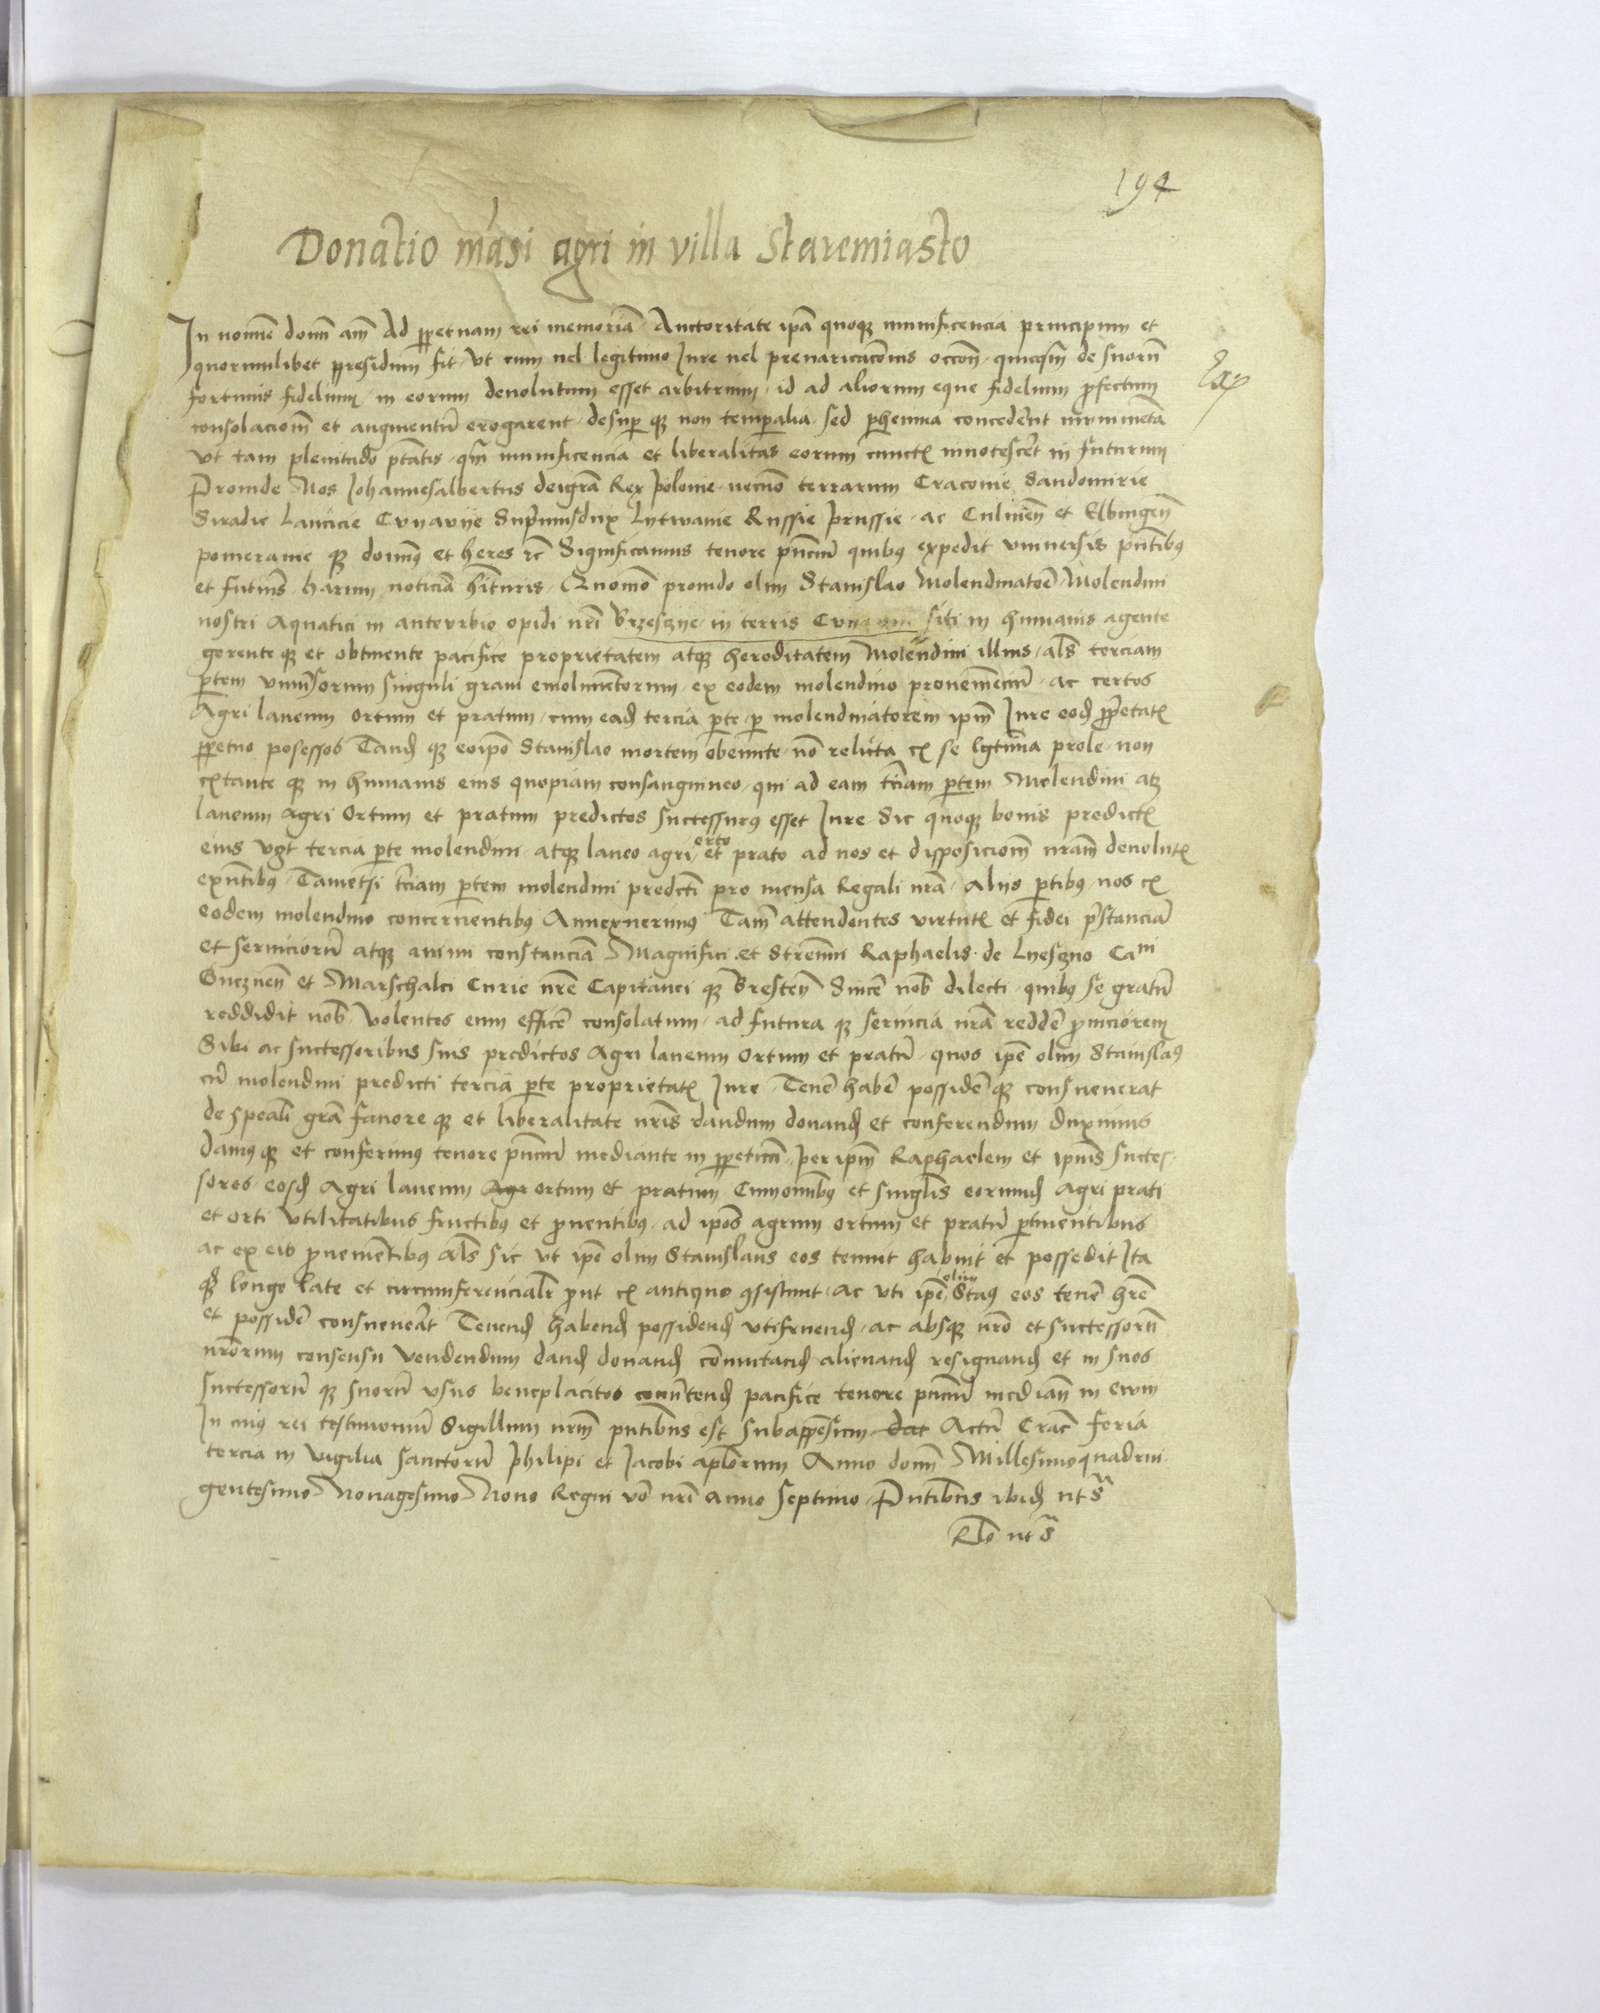 194
Donatio māsi agri in villa Staremiasto
In nomīe domī amē Ad ꝑpetuam rei memoriā Auctoritate ip̄a quoqꝫ munificencia principum et
quorumlibet presidium fit Vt cum uel legitimo Jure uel prevaricacōnis occōn de suorū
fortunis fidelium in eorum devolutum esset arbitrium id ad aliorum eque fidelium ꝓfectum
consolacionē et augmentū erogarent desup qꝫ non temporalia sed ꝑhenna concederēt
Vt tam plenitudo ptātis qm̄ munificencia et liberalitas eorum cunctꝭ innotescēt in futurum
Proinde Nos Johannesalbertus deigrā Rex polonie necnō terrarum Cracovie Sandomirie
Siradie Lancicie Cuyavie Suprmusdux Lytwanie Russie prussie ac Culmeñ et Elbingeñ
pomeranie qꝫ domīꝰ et heres rc̄ Significamus tenore pn̄cium quibꝰ expedit vniuersis pn̄tibꝰ
et futuris harum noticiā hīturis Quomō prouido olim Stanislao Molendinatorē Molendini
nostri Aquatici in anteurbio opidi nr̄i Brzesczye in terris Cuyavie siti in humanis agente
gerente qꝫ et obtinente pacifice proprietatem atqꝫ hereditatem Molendini illius als̄ terciam
ꝑtem vniūsorum singuli grani emolumentorum ex eodem molendino proveniencium ac certos
Agri laneum ortum et pratum cum eadꝫ tercia ꝑte ꝑ molendinatorem ipm̄ Jure eodꝫ ꝓprietatꝭ
ꝑpetuo posessos Tandꝫ qꝫ eoipō Stanislao mortem obeunte nō relicta ex se lgtīma prole non
extante qꝫ in humanis eius quopiam consanguineo qui ad eam tciam ꝑtem Molendini atqꝫ
laneum agri Ortum et pratum predictos successurꝰ esset Jure Sic quoqꝫ bonis predictꝭ
eius vꝫt tercia ꝑte molendini atqꝫ laneo agri orto et prato ad nos et disposicionē nram̄ devolutꝭ
exn̄tibꝰ Tametsi tciam ꝑtem molendini predcti pro mensa Regali nrā Alijs ꝑtibꝰ nos ex
eodem molendino concernentibꝰ Annexuerimus Tam̄ attendentes virtutꝭ et fidei pstanciā
et serviciorū atqꝫ animi constanciā Magnifici et Strenui Raphaelis de Lyeszno Cani
Gneznen̄ et Marschalci Curie nrē Capitanei qꝫ Bresten̄ Sincē nob̄ dilecti quibꝰ se gratū
reddidit nob̄ Volentes eum efficē consolatum ad futura qꝫ servicia nrā reddē ꝓniciorem
Sibi ac successoribus suis predictos Agri laneum ortum et pratū quos ipē olim Stanislaꝰ
cū molendini predicti tercia ꝑte proprietatꝭ Jure Tenē habē possidē qꝫ consueuerat
de speali grā fauore qꝫ et liberalitate nrīs dandum donandꝫ et conferendum duximus
Damꝰ qꝫ et conferimꝰ tenore pn̄cium mediante in ꝑpetuum per ipm̄ Raphaelem et ipsius succes-
sores eosdꝫ Agri laneum Agr ortum et pratum Cumomibꝰ et singlis̄ eorumdꝫ agri prati
et orti vtilitatibus fructibꝰ et ꝓuentibꝰ ad ipōs agrum ortum et pratū ꝑtinentibus
ac ex eis ꝓuenientibꝰ als̄ sic vt ipē olim Stanislaus eos tenuit habuit et possedit Ita
qꝫ longe late et circumferencialr̄ ꝓut ex antiquo ꝯsistunt Ac vti ipē olim Staꝰ eos tenē hrē
et possidē consueuēat Tenendꝫ habendꝫ possidendꝫ vtifruendꝫ ac absqꝫ nrō et successorū
nrōrum consensu vendendum dandꝫ donandꝫ cōmutandꝫ alienandꝫ resignandꝫ et in suos
successorū qꝫ suorū vsus beneplacitos conūtendꝫ pacifice tenore pn̄cium median̄ in ewm
In cuiꝰ rei testimoniū Sigillum nrm̄ pntibus est subappensum dat Actū Crac̄ feria
tercia in vigilia sanctorū Philipi et Jacobi aplorum Anno domī Millesimoquadrin-
gentesimo Nonagesimo Nono Regni vō nrī anno septimo Pn̄tibus ibidꝫ ut s̄
Rlō ut s̄